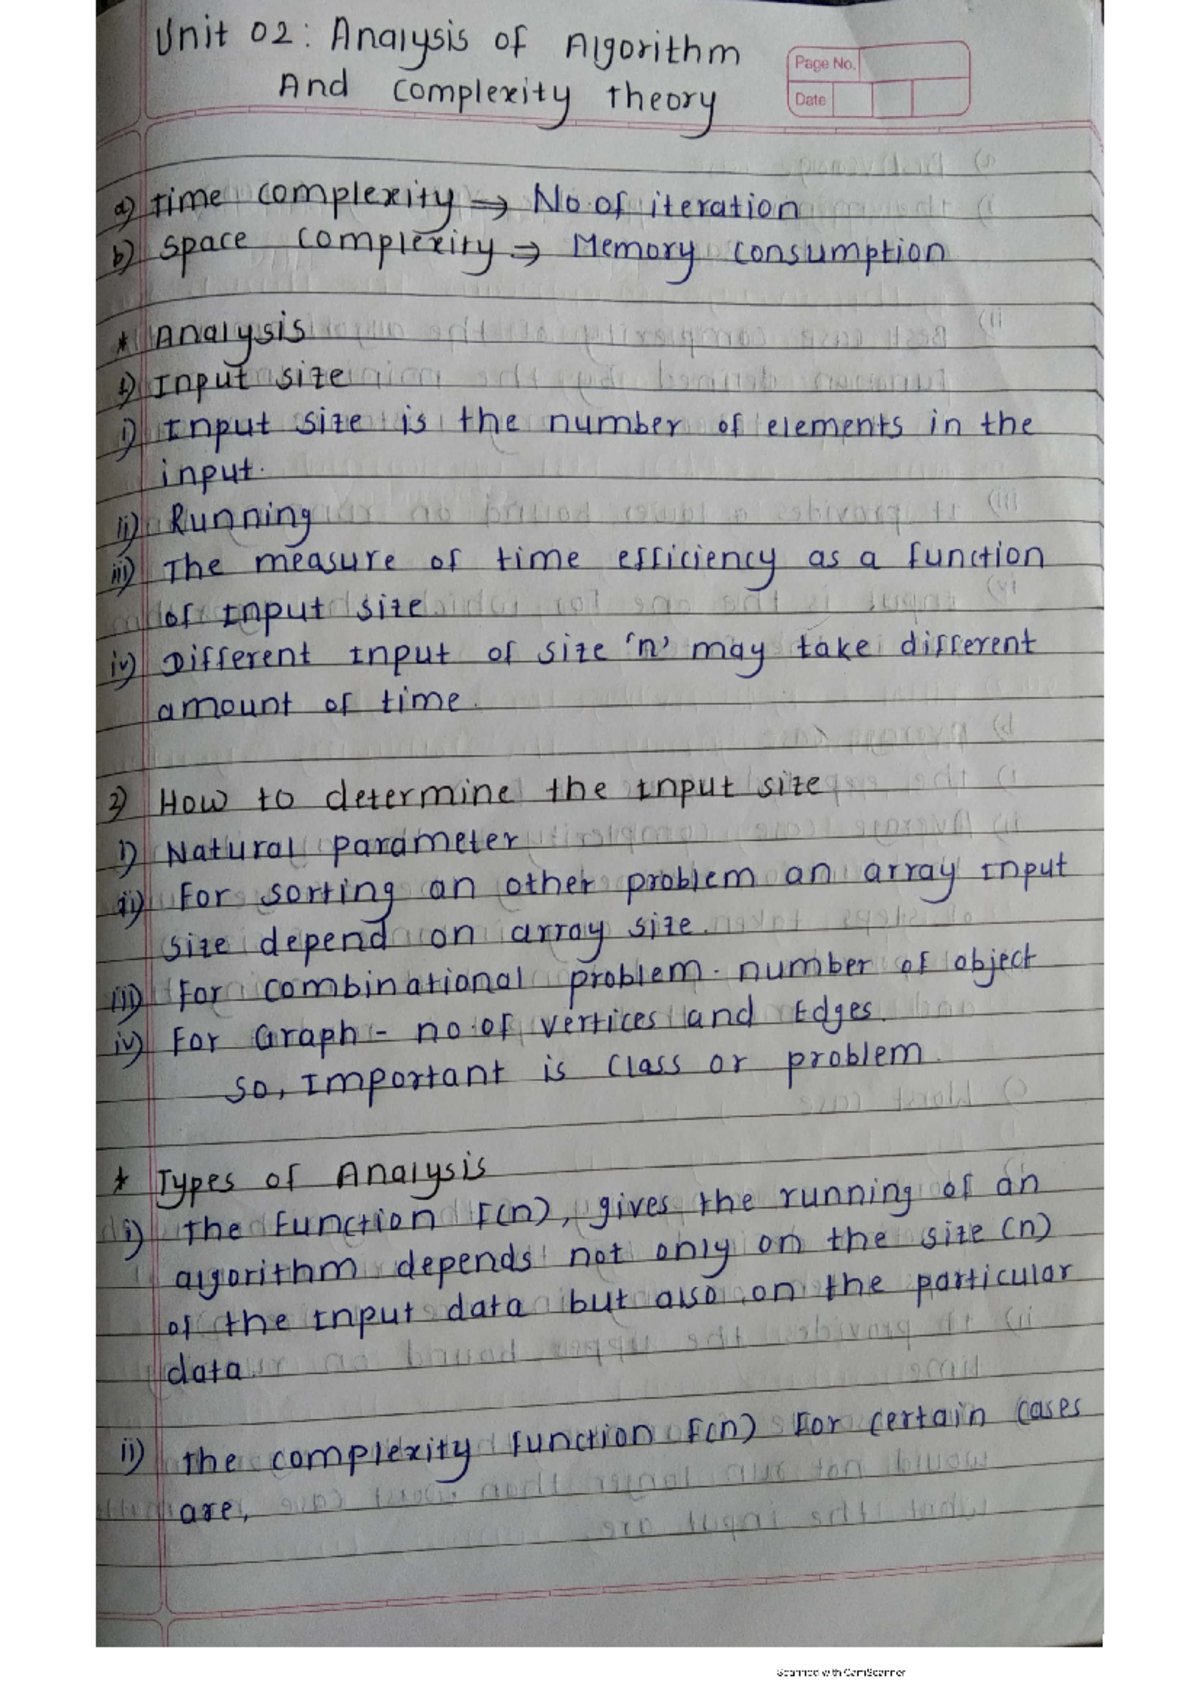 Unit 02: Analysis of Algorithm
And complexity Theory
Page No.
Date
a) Time complexity → No. of iteration
b) Space complexity → Memory consumption
* Analysis
1) Input size
i) Input size is the number of elements in the
input.
ii) Running
iii) The measure of time efficiency as a function
of Input size.
iv) Different Input of size 'n' may take different
amount of time.
2) How to determine the Input size
i) Natural parameter
ii) For sorting an other problem an array Input
size depend on array size.
iii) For combinational problem. number of object
iv) For Graph :- no. of vertices and Edges.
So, Important is Class or problem.
* Types of Analysis
i) The Function F(n), gives the running of an
algorithm depends not only on the size (n)
of the Input data but also on the particular
data
ii) The complexity function F(n) For certain cases
are,
Scanned with CamScanner